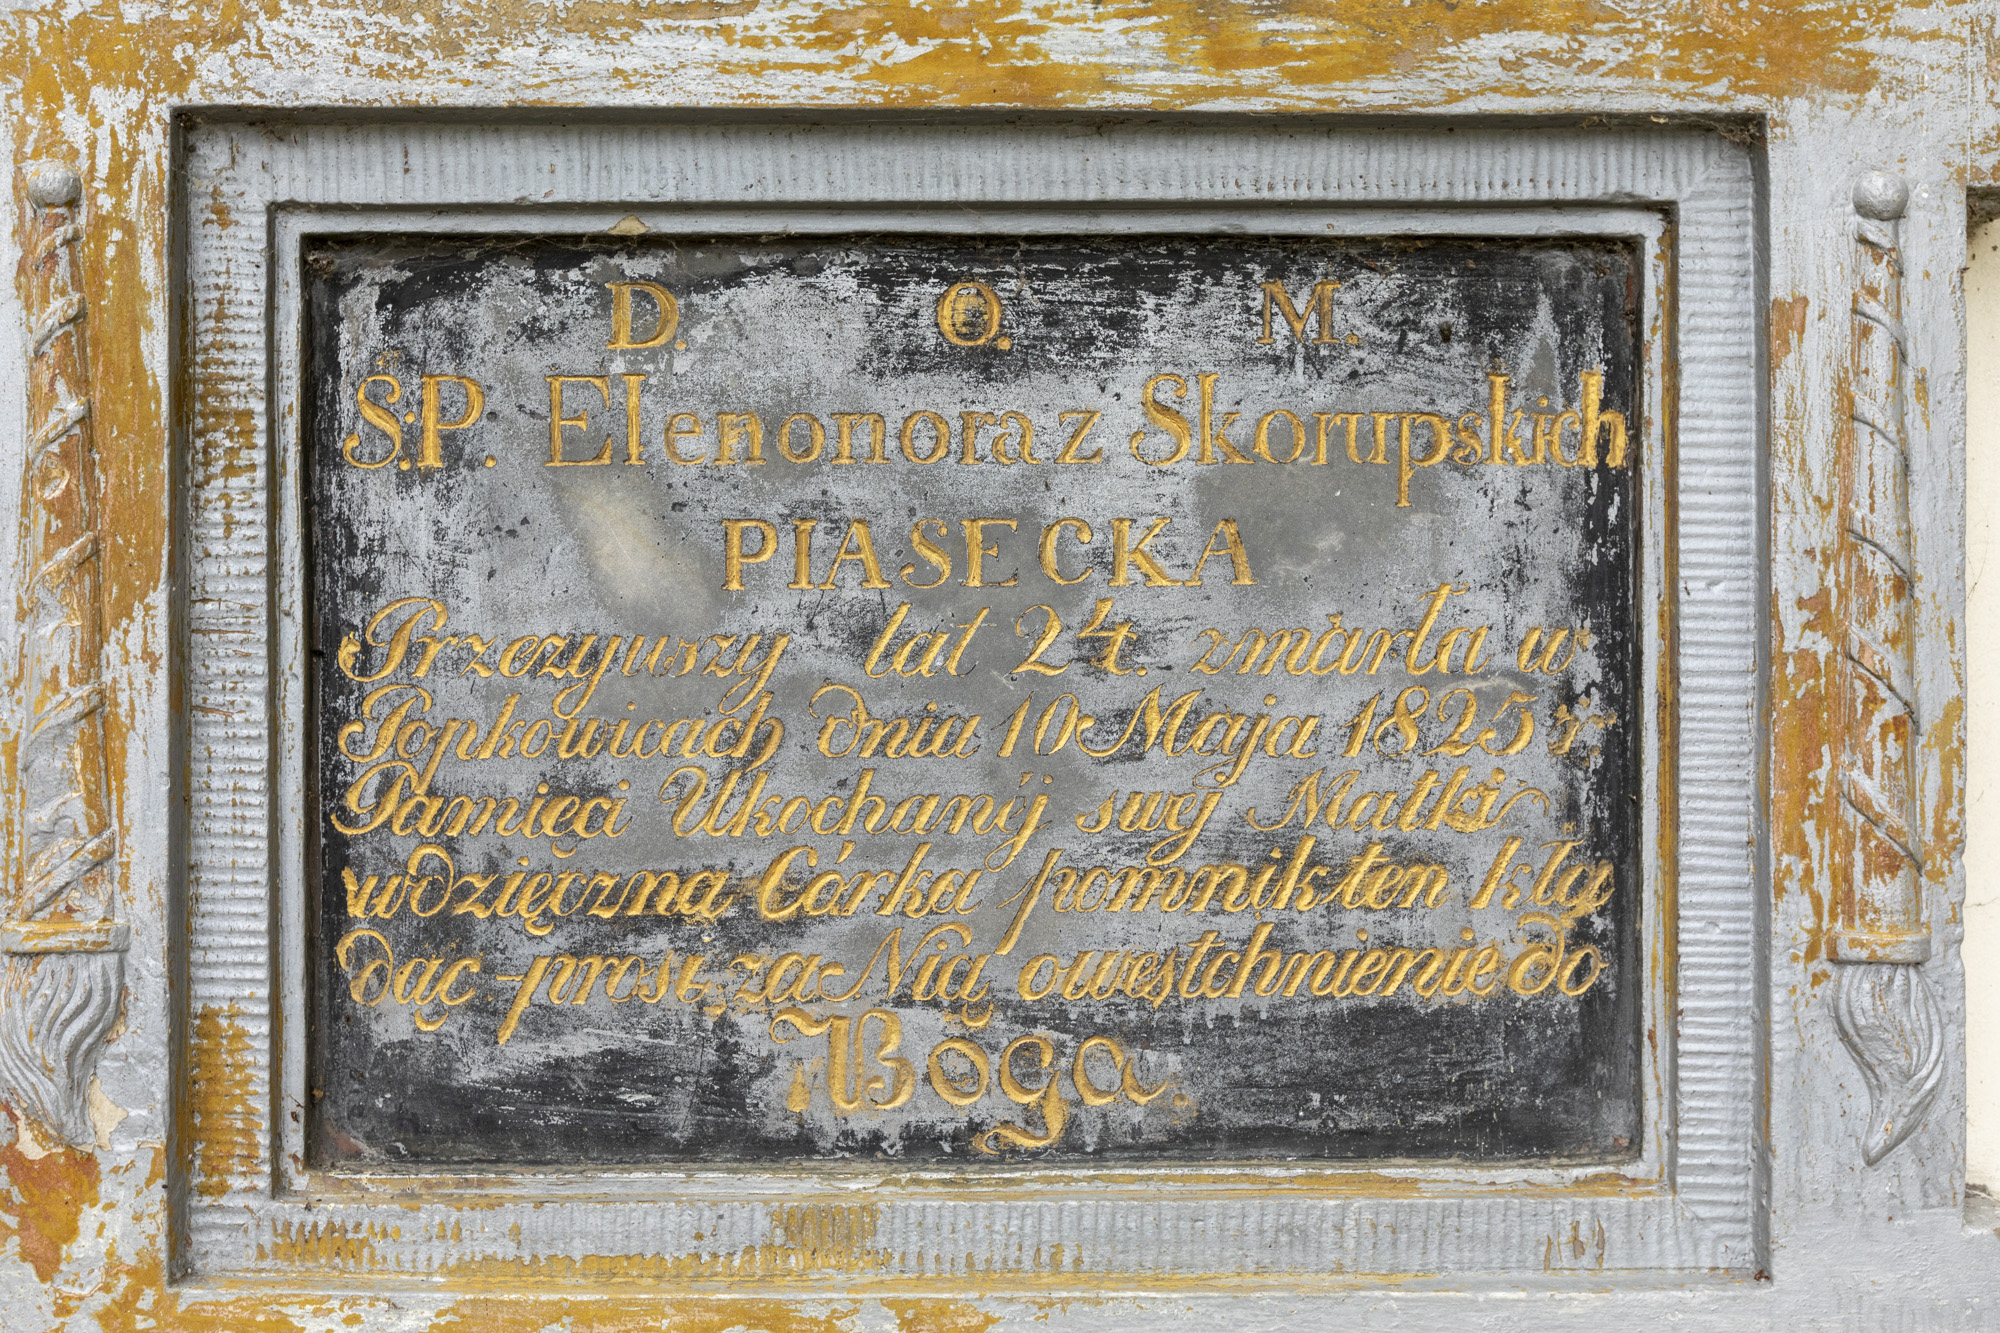 D. O. M.
Ś:P. Elenonora z Skorupskich
PIASECKA
Przezyuszy lat 24. zmàrła w
Popkowicach dniu 10 Maja 1825 r.
Pamięci Ukochanéj swej Matki
wdzięczna Córka pomnik ten kła
dąc prosi, za Nią owestchnienie do
Boga.